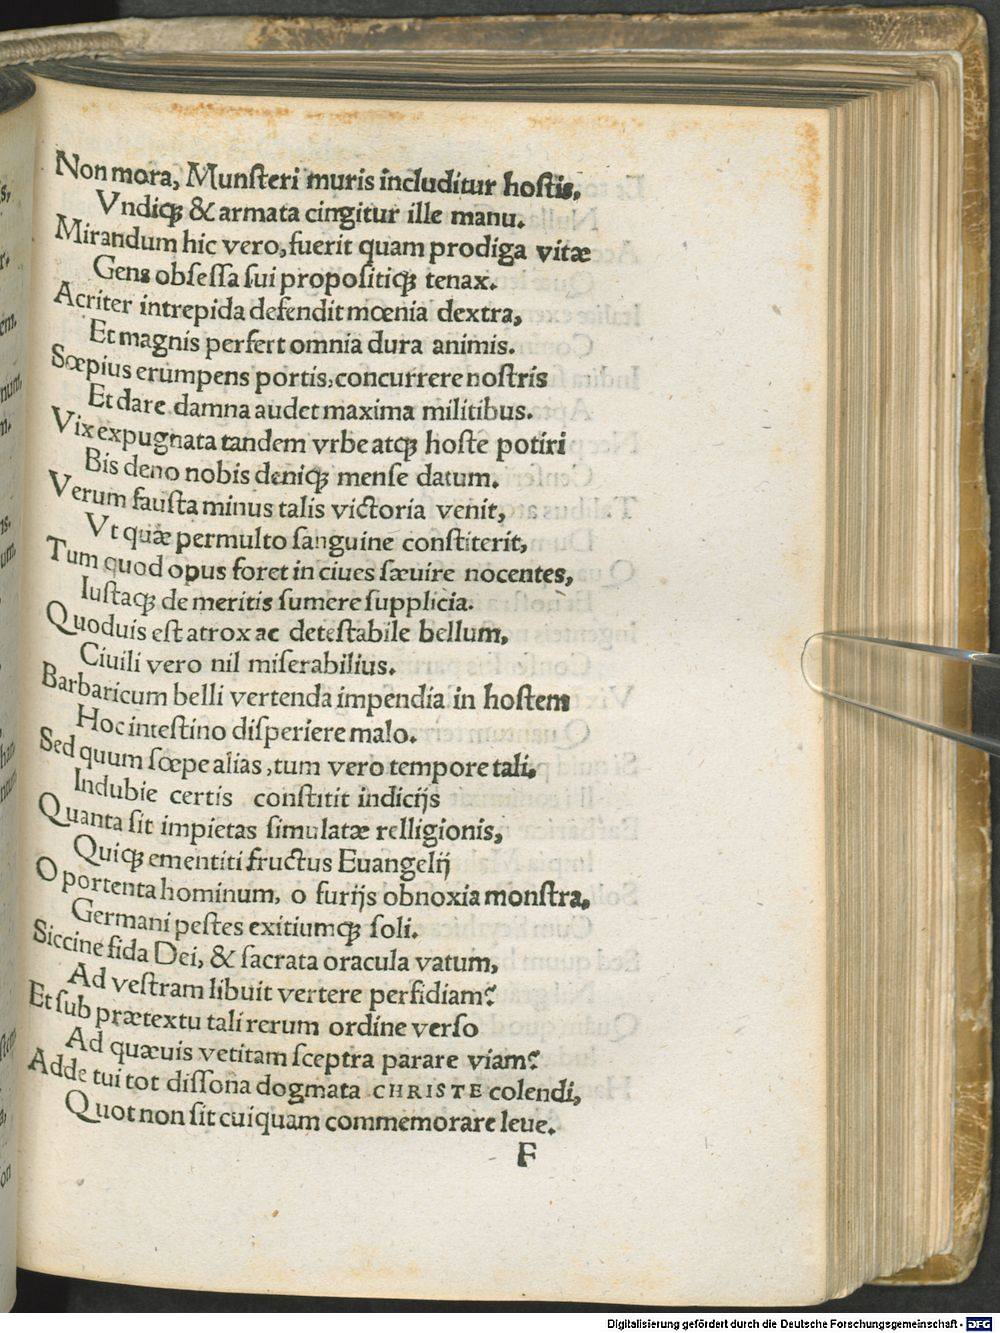 Non mora, Munſteri muris includitur hoſtis,
Vndiq; & armata cingitur ille manu.
Mirandum hic vero, fuerit quam prodiga vitæ
Gens obſeſſa ſui propoſitiq; tenax.
Acriter intrepida defendit mœnia dextra,
Et magnis perfert omnia dura animis.
Sœpius erumpens portis, concurrere noſtris
Et dare damna audet maxima militibus.
Vix expugnata tandem vrbe atq; hoſte potiri
Bis deno nobis deniq; menſe datum.
Verum fauſta minus talis victoria venit,
Vt quæ permulto ſanguine conſtiterit,
Tum quod opus foret in ciues ſæuire nocentes,
Iuſtaq; de meritis ſumere ſupplicia.
Quoduis eſt atrox ac deteſtabile bellum,
Ciuili vero nil miſerabilius.
Barbaricum belli vertenda impendia in hoſtem
Hoc inteſtino diſperiere malo.
Sed quum ſœpe alias, tum vero tempore tali,
Indubie certis conſtitit indicijs
Quanta ſit impietas ſimulatæ relligionis,
Quiq; ementiti fructus Euangelij
O portenta hominum, o furijs obnoxia monſtra,
Germani peſtes exitiumq; ſoli.
Siccine fida Dei, & ſacrata oracula vatum,
Ad veſtram libuit vertere perfidiam?
Et ſub prætextu tali rerum ordine verſo
Ad quæuis vetitam ſceptra parare viam?
Adde tui tot diſſona dogmata CHRISTE colendi,
Quot non ſit cuiquam commemorare leue.
F
Digitalisierung gefördert durch die Deutsche Forschungsgemeinschaft - DFG